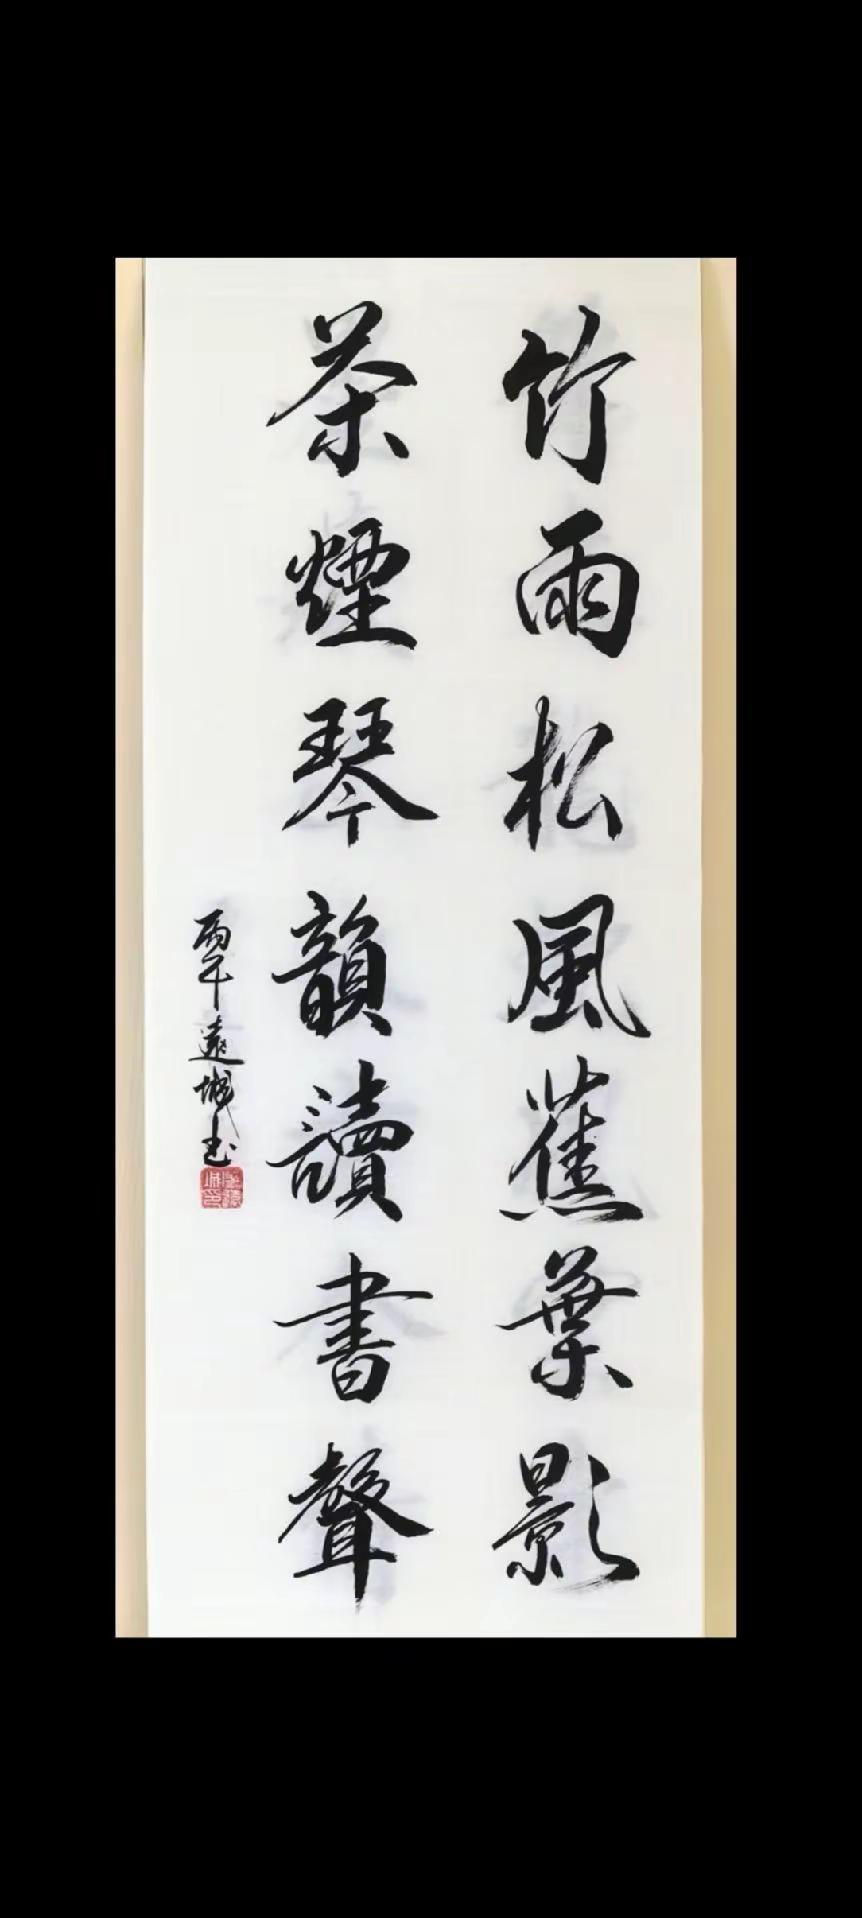 竹雨松風蕉葉影
茶煙琴韻讀書聲
丙午遠城書